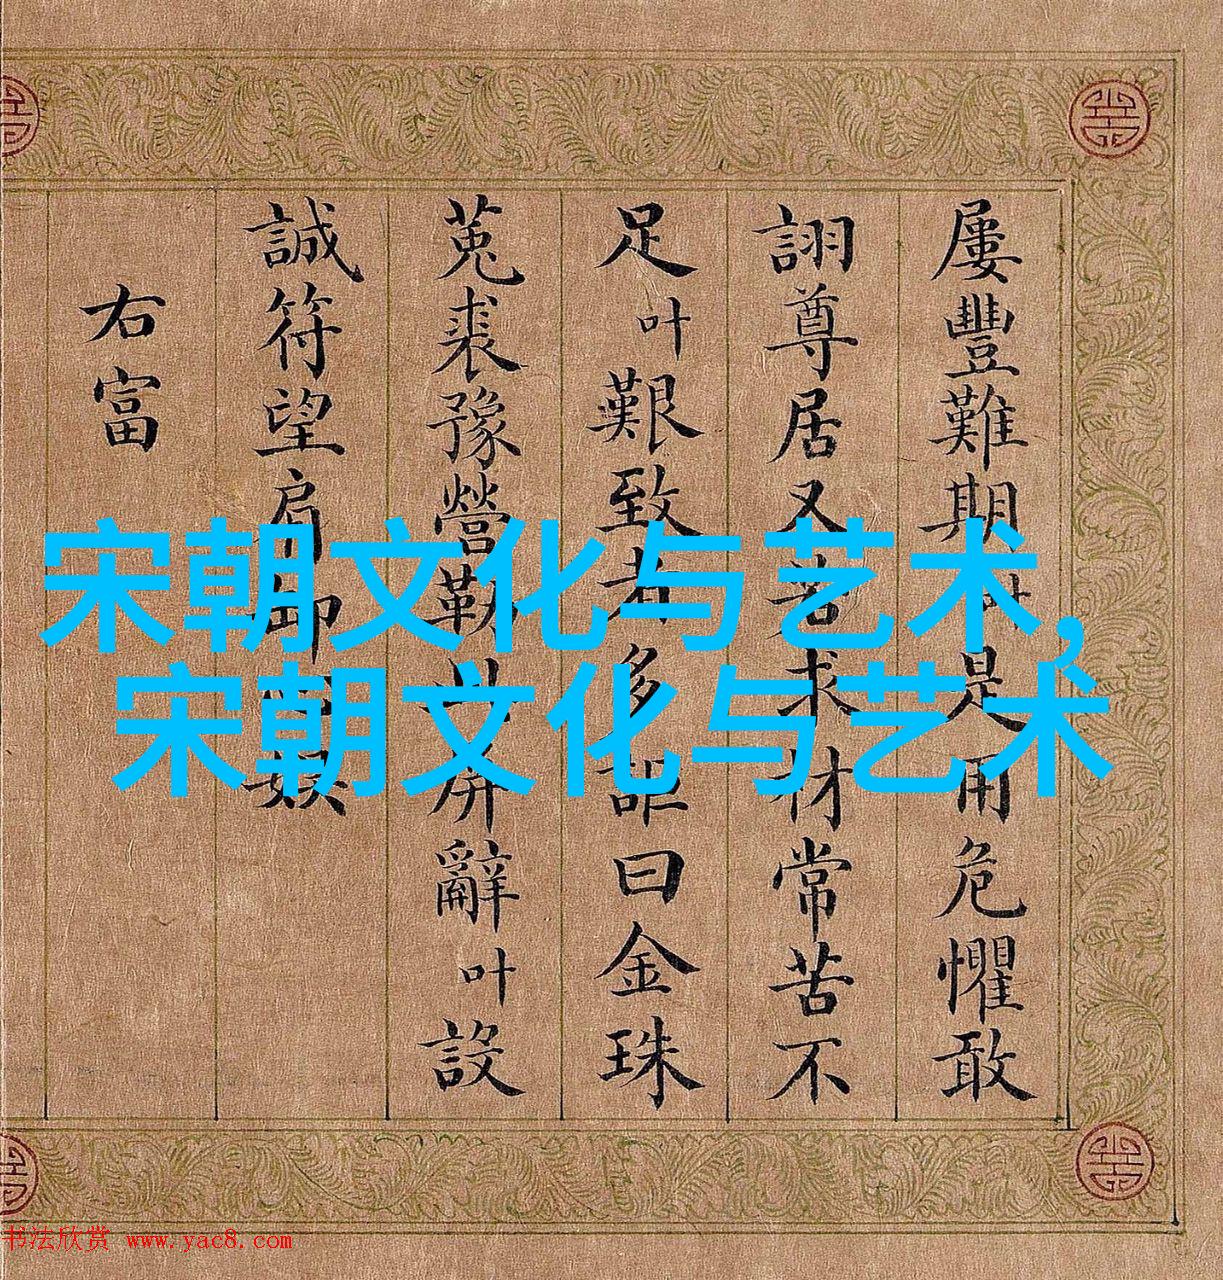 屢豐難期是用危懼敢
詡尊居又苦求材常苦不
足叶艱致者多詎曰金珠
菟裘豫營勒屏辭叶設
誠符望肩娛
右富
宋朝文化与艺术,
宋朝文化与艺术
书法欣赏 www.yac8.com